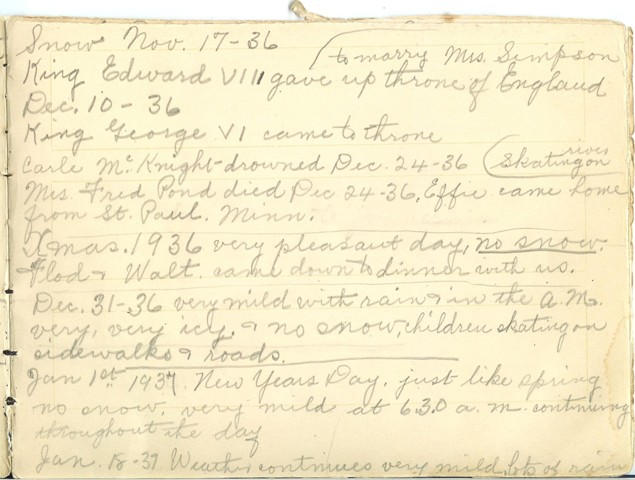 Snow Nov. 17-36
to marry Mrs. Simpson
King Edward VIII gave up throne of England
Dec. 10-36
King George VI came to throne
Carle McKnight-drowned Dec. 24-36 (skating on
river
Mrs. Fred Pond died Dec 24-36, Effie came home
from St. Paul. Minn.
Xmas. 1936 very pleasant day, no snow.
Flod & Walt. came down to dinner with us.
Dec. 31-36 very mild with rain & in the a.m.
very, very icy, & no snow, children skating on
sidewalks & roads.
Jan 1st 1937. New Years Day. just like spring
no snow. very mild at 6.30 a.m. continuing
throughout the day
Jan. 37 Weather continues very mild, lots of rain